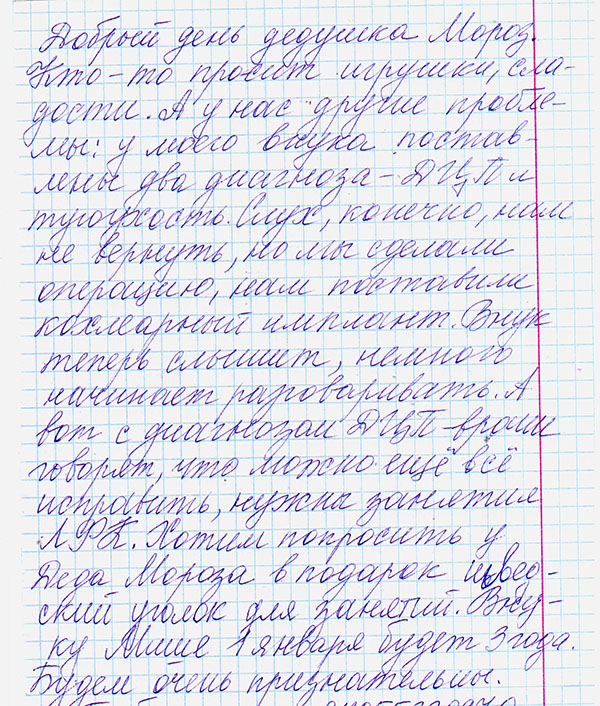 Добрый день дедушка Мороз.
Кто-то просит игрушки, сла-
дости. А у нас другие пробле-
мы: у моего внука постав-
лены два диагноза - ДЦП и
тугоухость. Слух, конечно, нам
не вернуть, но мы сделали
операцию, нам поставили
кохлеарный имплант. Внук
теперь слышит, немного
начинает разговаривать. А
вот с диагнозом ДЦП - врачи
говорят, что можно ещё всё
исправить, нужны занятия
ЛФК. Хотим попросить у
Деда Мороза в подарок швед-
ский уголок для занятий. Вну-
ку Мише 1 января будет 3 года.
Будем очень признательны.